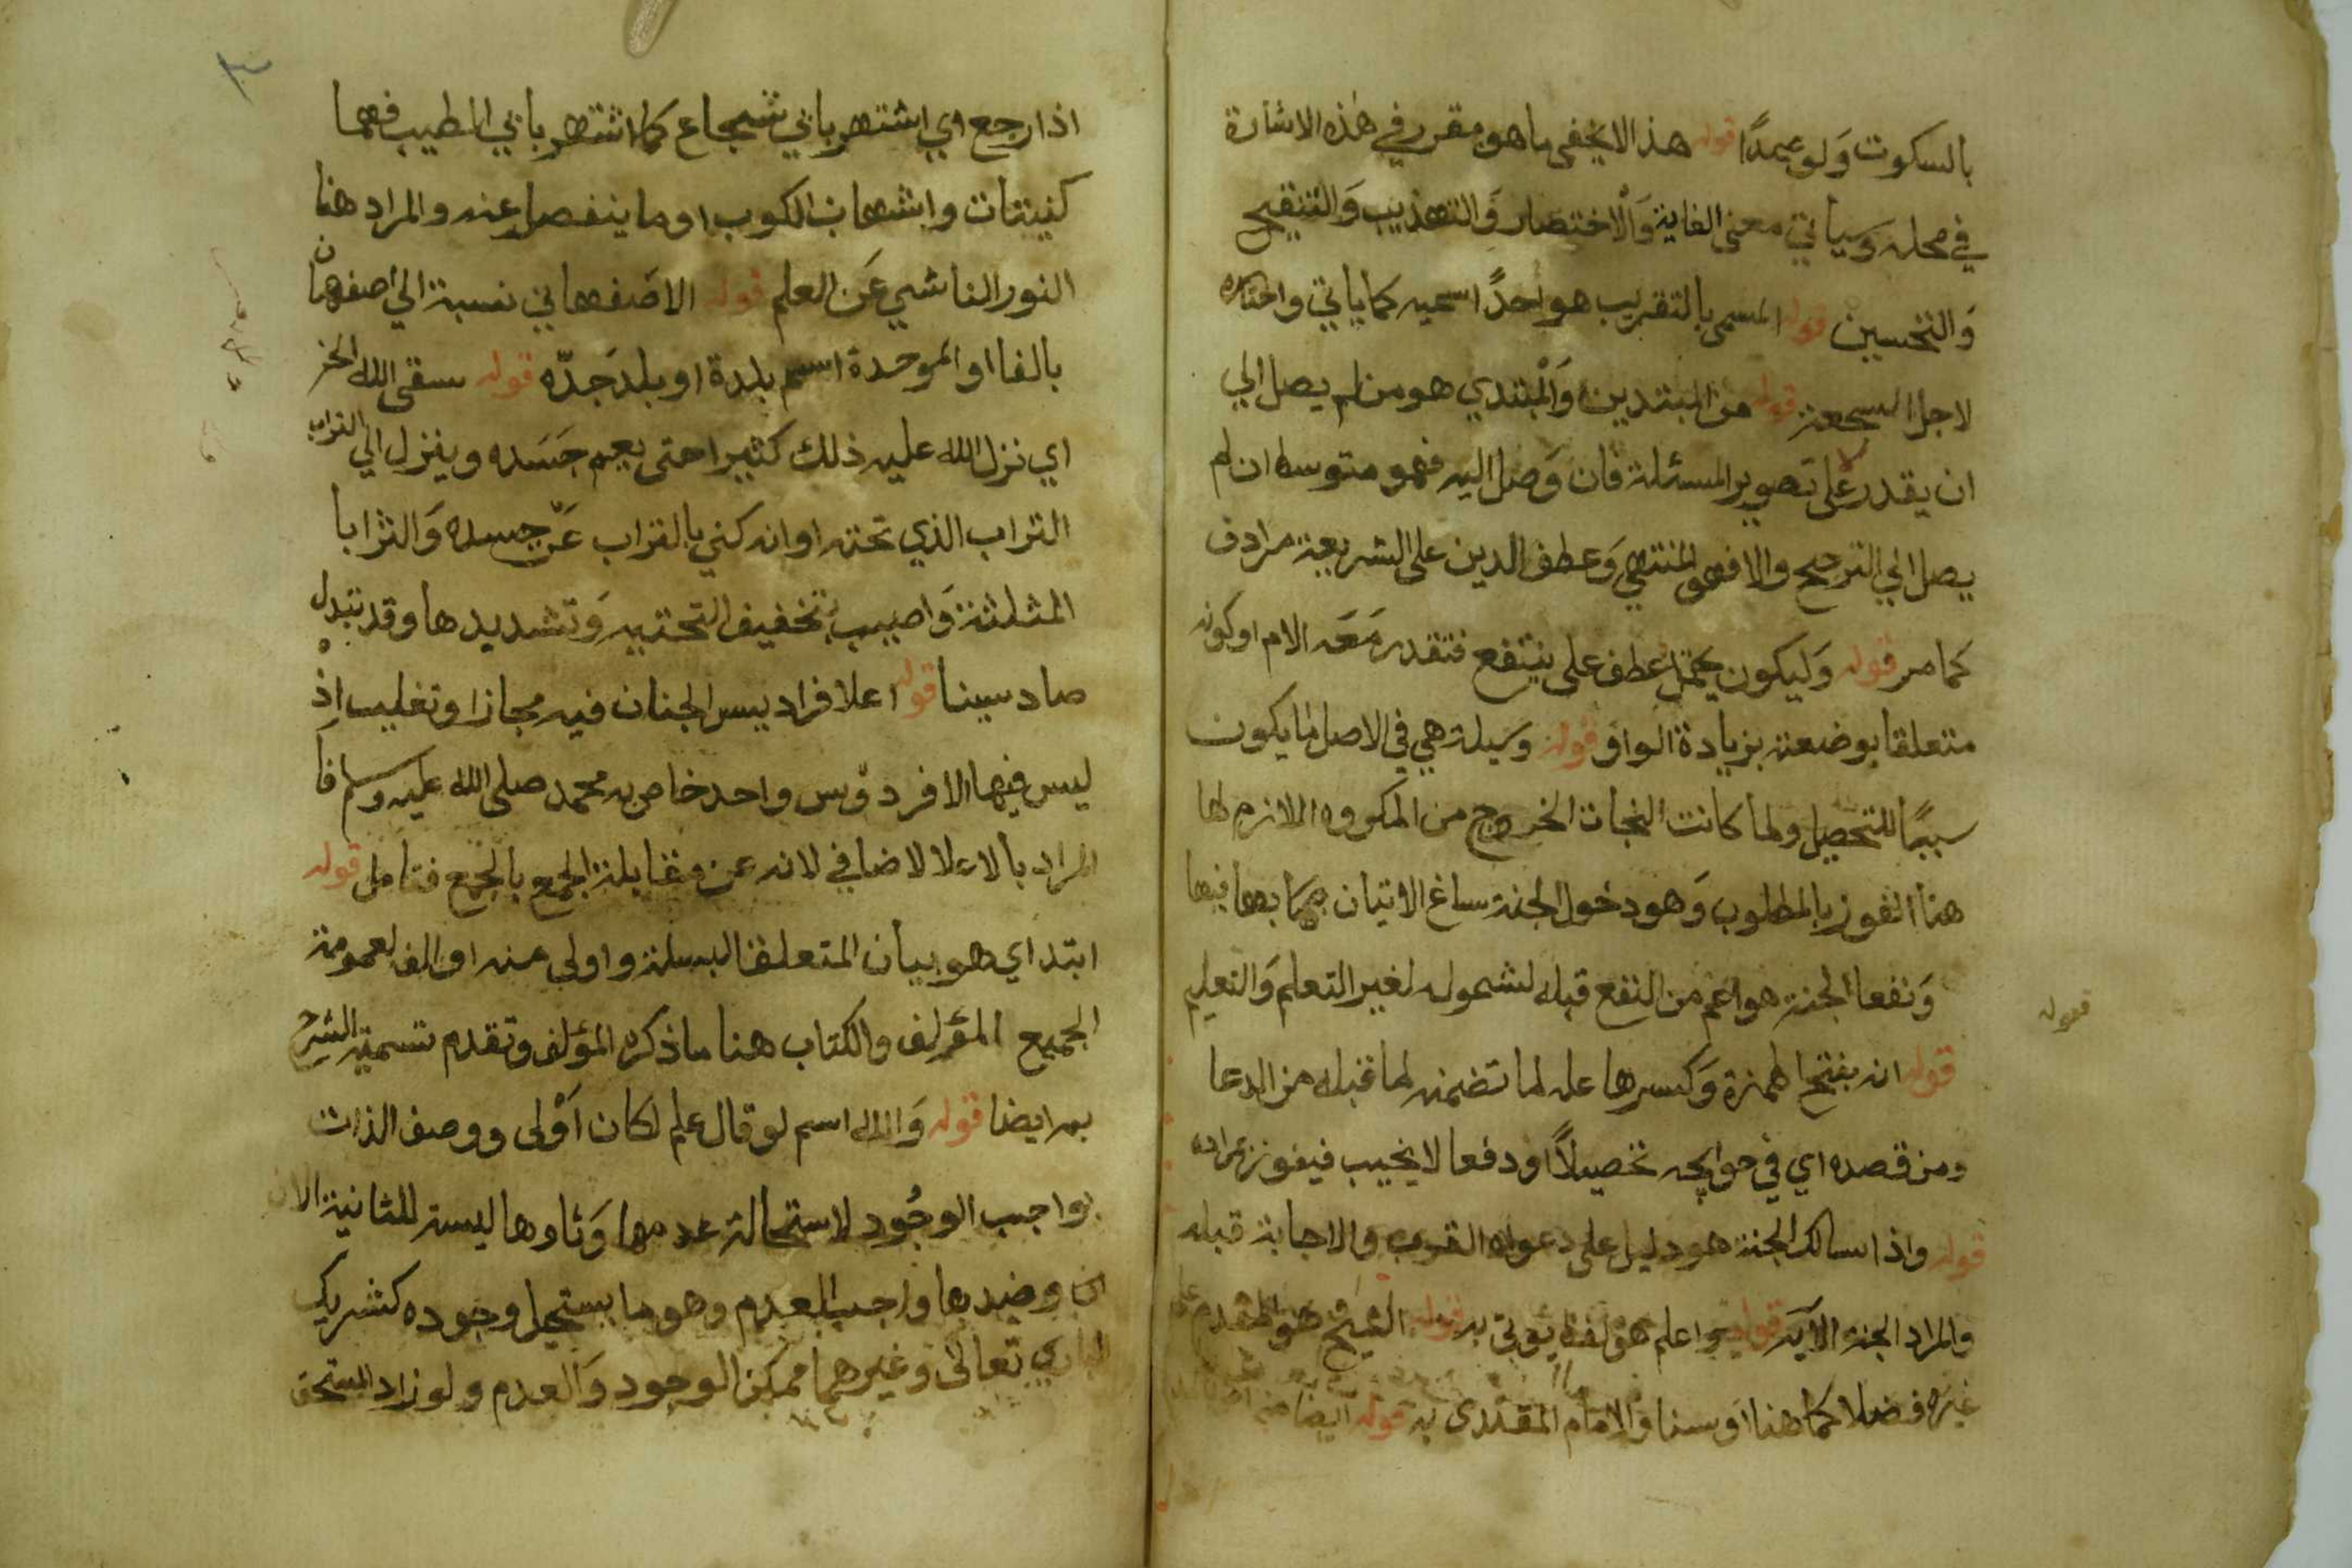 بالسكوت وَلو عمدًا قوله هذا لا يخفى ما هو مقرر في هذه الاشارة
في محله وسياتي معنى الغاية وَالْاختصار وَالتهذيب وَالتنقيح
وَالتحسين قوله المسمى بالتقريب هو احدً اسميه كما ياتي واختاره
لاجل السجعة قوله من المبتدين وَالْمبتدي هو من لم يصل الي
ان يقدر على تصوير المسئلة فان وَصل اليه فهو متوسط ان لم
يصل الي الترجيح والا فهو المنتهي وَعطف الدين على الشريعة مرادف
كما مر قوله وَليكون يحتمل عطف على ينتفع فتقدر مَعَه الام او كونه
متعلقا بوضعته بزيادة الواوَ قوله وسيلة هي في الاصل ما يكون
سببًا للتحصيل ولما كانت النجات الخروج من المكروه اللازم لها
هنا الفوز بالمطلوب وَهو دخول الجنة ساغ الاتيان بها فيها
وَنفعا لجنة هو اعم من النفع قبله لشموله لغير التعلم وَالتعليم
قوله
قوله انه بفتح الهمزة وَكسرها عله لما تضمنه لما قبله من الدعا
ومن قصده اي في حوايجه تحصيلاً او دفعا لا يخيب فيفوز بمراده
قوله واذا سالك الجنة هو دليل على دعواه القرب والاجابة قبله
والمراد الجنة الآية قوله واعلم هو لفظ يوتى به قوله الشيخ هو المقدم على
غيره فضلا كما هنا اوَ سنا وَالامام المقتدى به قوله ايضا
٣
اذا رجع اي اشتهر بابي شجاع كما اشتهر بابي الطيب فهما
كنيتان وشهاب الكوب او ما ينفصل عنه والمراد هنا
النور الناشي عَن العلم قوله الاصفهاني نسبة الي اصفهان
بالفا او الموحدة اسم بلدة او بلد جَدّه قوله سقى الله الخ
اي نزل الله عليه ذلك كثيرا حتى يعم جَسَده وينزل الي التراب
التراب الذي تحته او انه كني بالتراب عَن جسده وَالثرا با
المثلثة وَاصبيب بتخفيف التحتيه وَتشديدها وقد تبدل
صاد سينا قوله اعلا فراديس الجنان فيه مجازا وتغليب اذ
ليس فيها الا فردوس واحد خاص به محمد صلى الله عليه وسلم فا
المراد بالاعلا الاضافي لانه عن مقابلة الجمع بالجمع فتامل قوله
ابتداي هو بيان المتعلق البسملة واولى منه اوالف لعمومة
الجميع المؤلف والكتاب هنا ما ذكره المؤلف وتقدم تسمية الشرح
به ايضا قوله وَالله اسم لو قال علم لكان اَوْلى ووصف الذات
بواجب الوجُود لاستحالة عدمها وَتاوها ليسة للتانية الان
وضدها واجب العدم وهو ما يستحيل وجوده كشريك
الباري تعالى وغيرهما ممكن الوجود وَالعدم ولو زاد المستحق